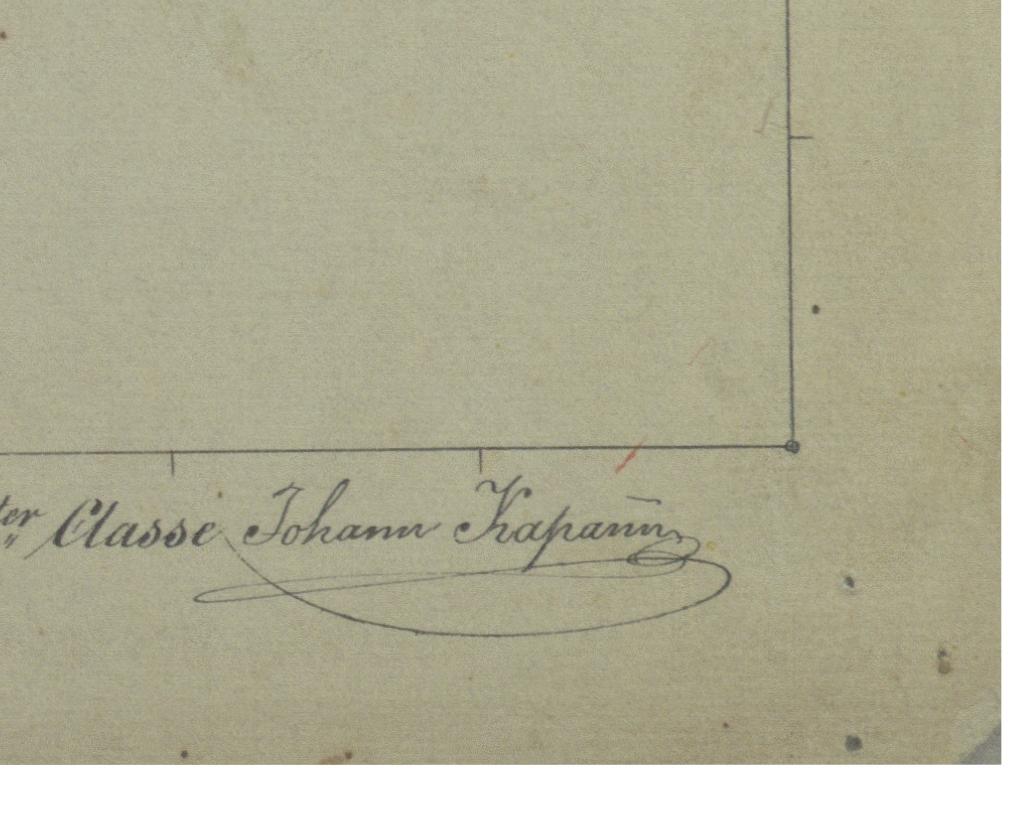 ter Classe Johann Kapan̄n